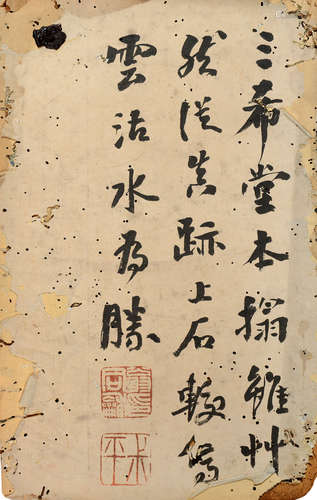 三希堂本搨雖艸
然從真跡上石較停
雲活水為勝